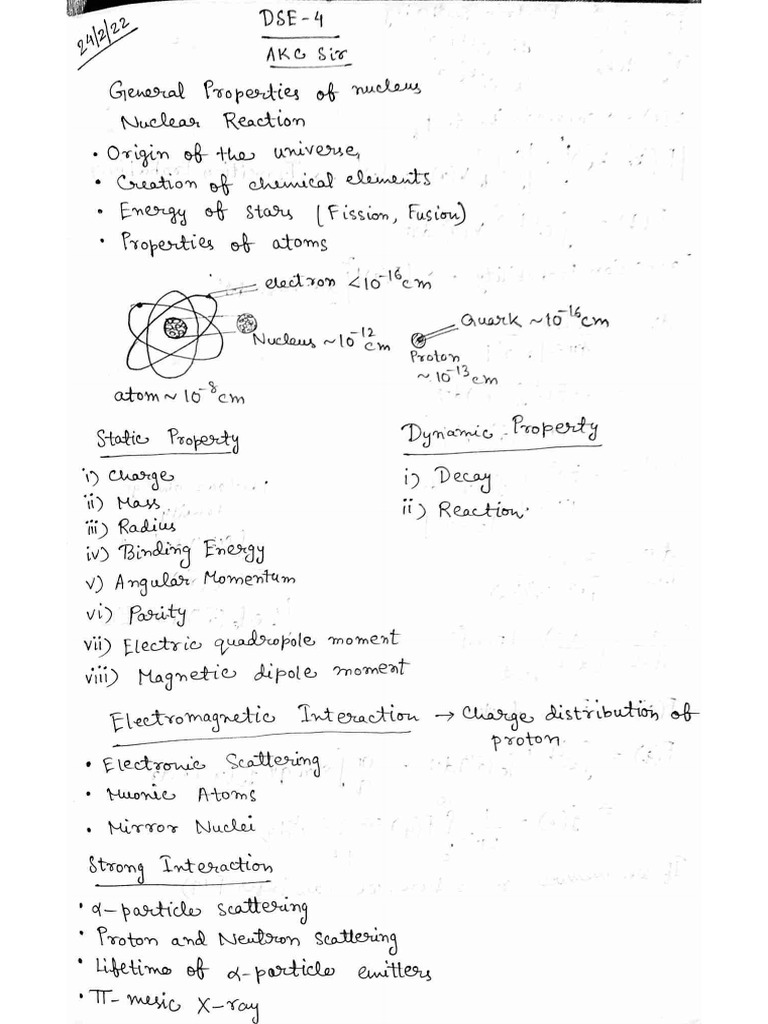 24/2/22
DSE-4
AKG Sir
General Properties of nucleus
Nuclear Reaction
• Origin of the universe,
• Creation of chemical elements
• Energy of stars (Fission, Fusion)
• Properties of atoms
electron <10⁻¹⁶cm
Nucleus ~10⁻¹² cm
Quark ~10⁻¹⁶cm
Proton
~10⁻¹³cm
atom ~ 10⁻⁸cm
Static Property
i) Charge
ii) Mass
iii) Radius
iv) Binding Energy
v) Angular Momentum
vi) Parity
vii) Electric quadropole moment
viii) Magnetic dipole moment
Dynamic Property
i) Decay
ii) Reaction
Electromagnetic Interaction → Charge distribution of
proton
• Electronic Scattering
• Muonic Atoms
• Mirror Nuclei
Strong Interaction
• α-particle scattering
• Proton and Neutron scattering
• Lifetime of α-particle emitters
• π-mesic X-ray